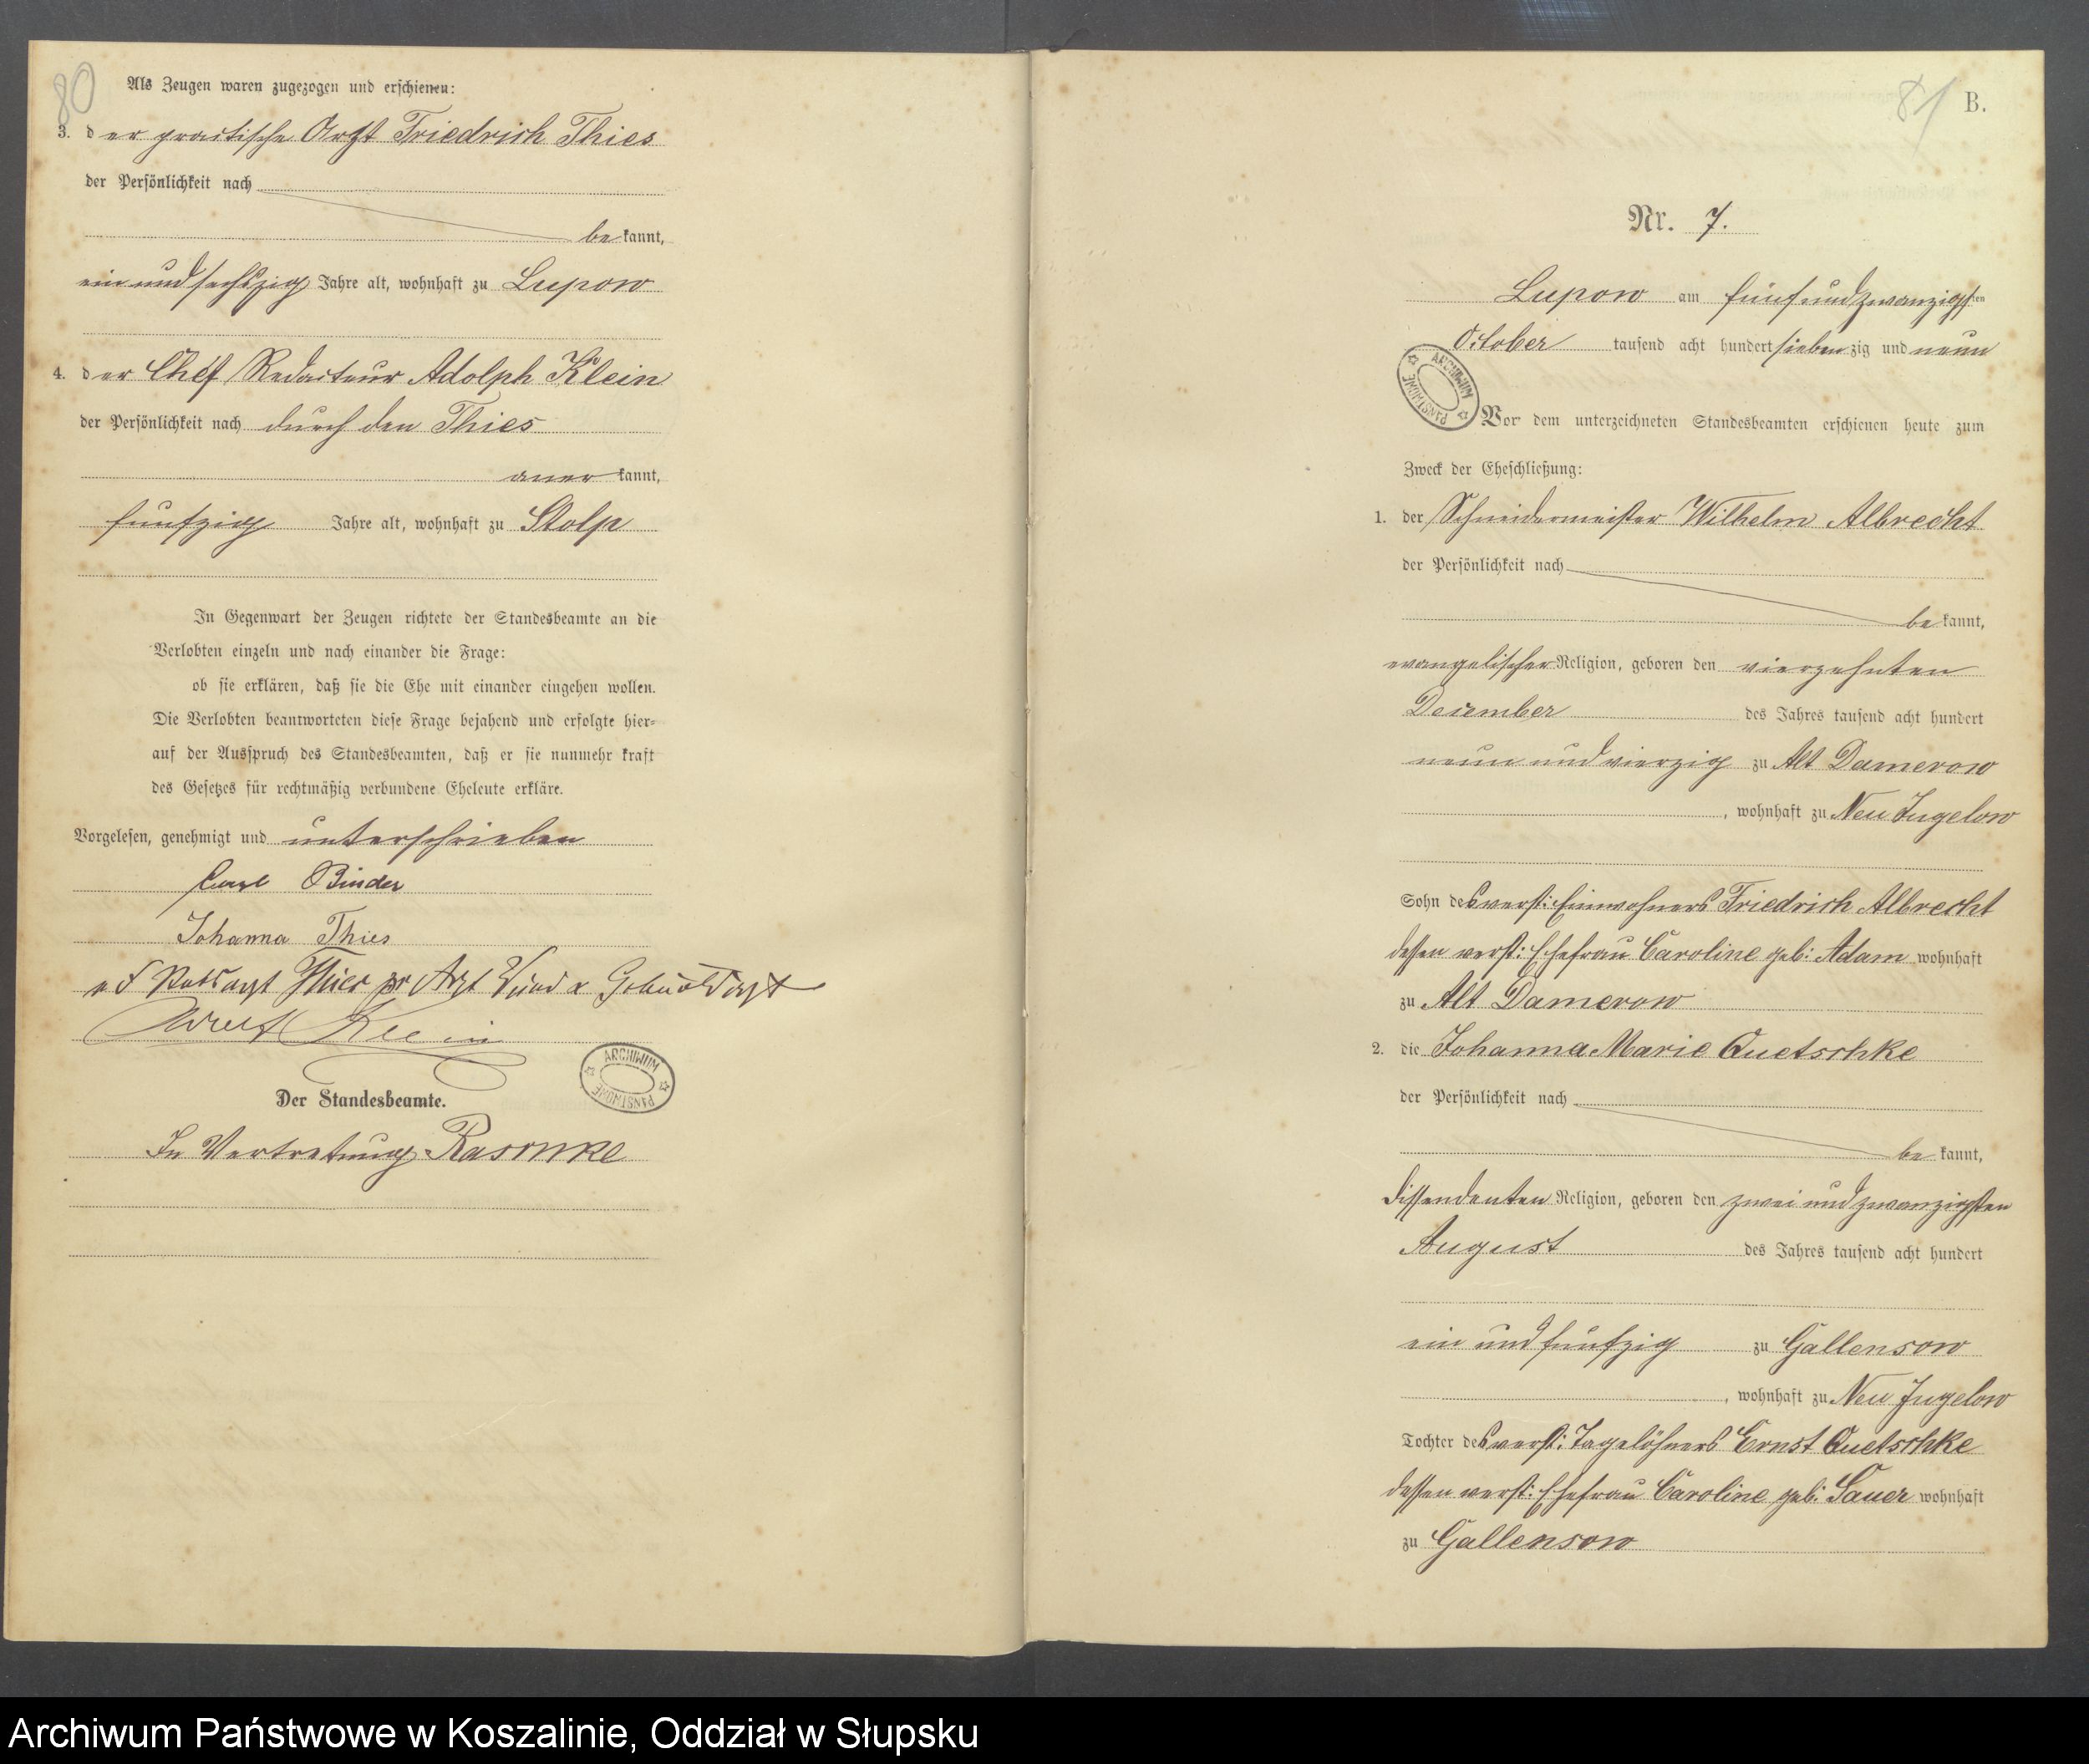 80
Als Zeugen waren zugezogen und erschienen:
3. der practische Arzt Friedrich Thies
der Persönlichkeit nach
bekannt,
ein und sechszig Jahre alt, wohnhaft zu Lupow
4. der Chef Redacteur Adolph Klein
der Persönlichkeit nach durch den Thies
anerkannt,
funfzig Jahre alt, wohnhaft zu Stolp
In Gegenwart der Zeugen richtete der Standesbeamte an die
Verlobten einzeln und nach einander die Frage:
ob sie erklären, daß sie die Ehe mit einander eingehen wollen.
Die Verlobten beantworteten diese Frage bejahend und erfolgte hier-
auf der Ausspruch des Standesbeamten, daß er sie nunmehr kraft
des Gesetzes für rechtmäßig verbundene Eheleute erkläre.
Vorgelesen, genehmigt und unterschrieben
Carl Binder
Johanna Thies
Thies pr Arzt Wund u Geburtsarzt
Adolf Klein
ARCHIWUM PAŃSTWOWE
Der Standesbeamte.
In Vertretung
81
B.
Nr. 7.
Lupow am fünf und zwanzigsten
October tausend acht hundert siebenzig und neun
ARCHIWUM PAŃSTWOWE
Vor dem unterzeichneten Standesbeamten erschienen heute zum
Zweck der Eheschließung:
1. der Schneidermeister Wilhelm Albrecht
der Persönlichkeit nach
bekannt,
evangelischer Religion, geboren den vierzehnten
December des Jahres tausend acht hundert
neun und vierzig zu Alt Damerow
, wohnhaft zu Neu Jugelow
Sohn des verst: Einwohners Friedrich Albrecht
dessen verst: Ehefrau Caroline geb: Adam wohnhaft
zu Alt Damerow
2. die Johanna Marie Quetschke
der Persönlichkeit nach
bekannt,
dissendenten Religion, geboren den zwei und zwanzigsten
August des Jahres tausend acht hundert
ein und funfzig zu Gallensow
, wohnhaft zu Neu Jugelow
Tochter des verst: Tagelöhners Ernst Quetschke
dessen verst: Ehefrau Caroline geb: Sauer wohnhaft
zu Gallensow
Archiwum Państwowe w Koszalinie, Oddział w Słupsku